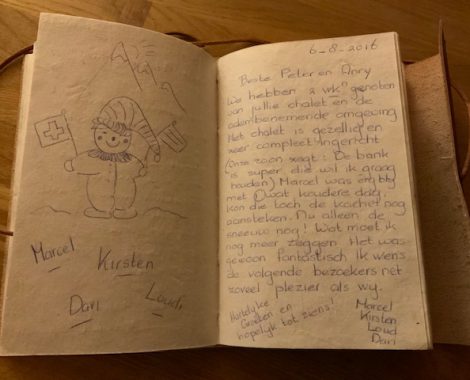 Marcel
Kirsten
Loudi
Dari
6-8-2016
Beste Peter en Anry
We hebben 2 wkn genoten
van jullie chalet en de
adembenemende omgeving
Het chalet is gezellig en
zeer compleet ingericht
(onze zoon zegt: De bank
is super die wil ik graag
houden) Marcel was erg blij
met 1 wat koudere dag,
kon die toch de kachel nog
aansteken. Nu alleen de
sneeuw nog! Wat moet ik
nog meer zeggen. Het was
gewoon fantastisch Ik wens
de volgende bezoekers net
zoveel plezier als wij.
Hartelijke
Groeten en
hopelijk tot ziens!
Marcel
Kirsten
Loud
Dari